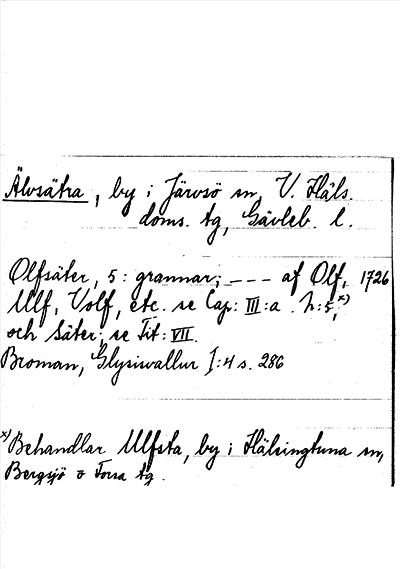 Älvsätra, by i Järvsö sn, V. Häls.
doms. tg, Gävleb. l.
Olfsäter, 5: grannar; --- af Olf, 1726
Ulf, Volf, etc. se Cap: III:a. h:5,x)
och säter; se Tit: VII.
Broman, Glysisvallur I:4 s. 286
x) Behandlar Ulfsta, by i Hälsingtuna sn,
Bergsjö o Forsa tg.